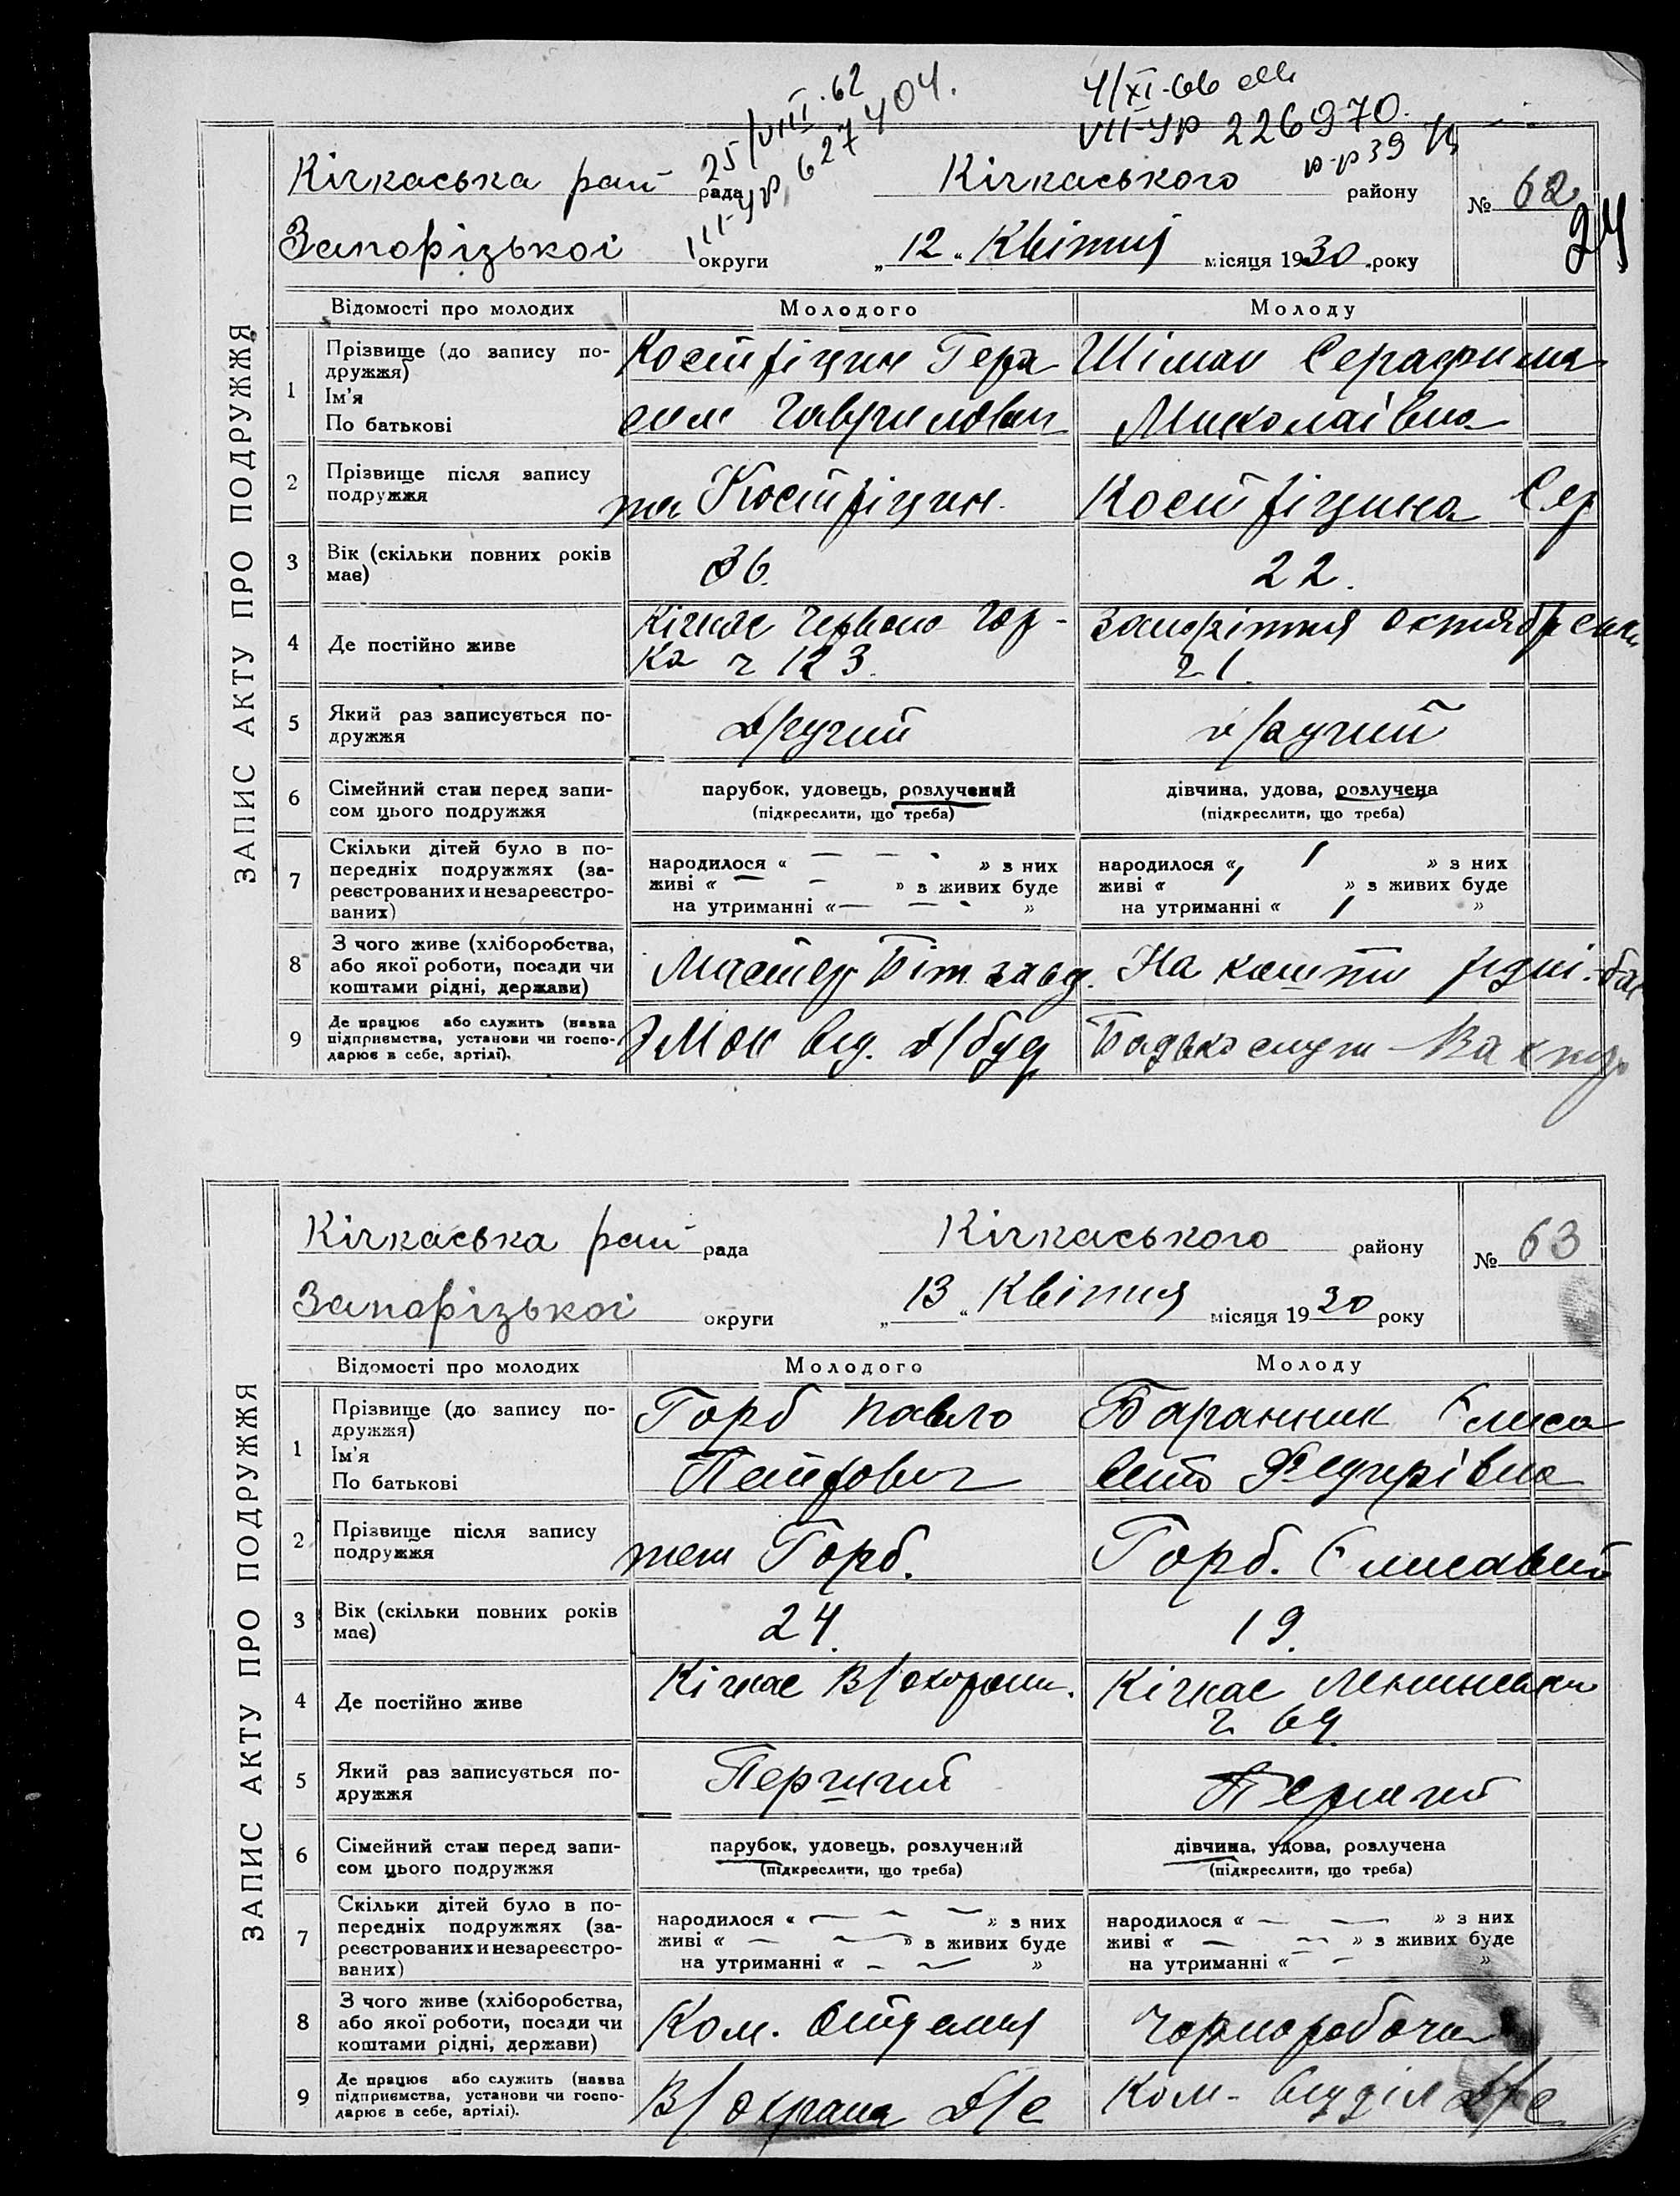 25/VIII.62
III-УР 627404.
4/XI-66
VII-УР 226970.
р-р 39
Кічкаська рай рада Кічкаського району № 62
24
Запорізької округи „12“ Квітня місяця 1930 року
ЗАПИС АКТУ ПРО ПОДРУЖЖЯ
Відомості про молодих Молодого Молоду
1 Прізвище (до запису подружжя) Костріцин Гера Шіман Серафима
Ім'я
По батькові сим Гаврилович Миколаівна
2 Прізвище після запису подружжя та Костріцин. Костріцина Сер
3 Вік (скільки повних років має) 36. 22.
4 Де постійно живе Кічкас Червона Гор- Запоріжжя Октябрська
ка ч 123. 21.
5 Який раз записується подружжя другий другий
6 Сімейний стан перед записом цього подружжя парубок, удовець, розлучений дівчина, удова, розлучена
(підкреслити, що треба) (підкреслити, що треба)
7 Скільки дітей було в попередніх подружжях (зареєстрованих и незареєстрованих) народилося « — — » з них народилося « » з них
живі « — — » з живих буде живі « » з живих буде
на утриманні « — — » на утриманні « »
8 З чого живе (хліборобства, або якої роботи, посади чи коштами рідні, держави) Мастер Біт. завд. На кошти рідні-ба
9 Де працює або служить (назва підприємства, установи чи господарює в себе, артілі). від. Д/буд Бадько служ
Кічкаська рай рада Кічкаського району № 63
Запорізької округи „13“ Квітня місяця 1930 року
ЗАПИС АКТУ ПРО ПОДРУЖЖЯ
Відомості про молодих Молодого Молоду
1 Прізвище (до запису подружжя) Горб Павло Баранник Єлиса
Ім'я
По батькові Петрович вета Федирівна
2 Прізвище після запису подружжя теш Горб. Горб. Єлисавета
3 Вік (скільки повних років має) 24. 19.
4 Де постійно живе Кічкас В/охорони. Кічкас Ленинська
ч 69.
5 Який раз записується подружжя Перший Перший
6 Сімейний стан перед записом цього подружжя парубок, удовець, розлучений дівчина, удова, розлучена
(підкреслити, що треба) (підкреслити, що треба)
7 Скільки дітей було в попередніх подружжях (зареєстрованих и незареєстрованих) народилося « — — — » з них народилося « — — » з них
живі « — — » з живих буде живі « — — » з живих буде
на утриманні « — — » на утриманні « — »
8 З чого живе (хліборобства, або якої роботи, посади чи коштами рідні, держави) Ком. отделения Чорноробоча
9 Де працює або служить (назва підприємства, установи чи господарює в себе, артілі). В/охрана Д/С Ком- відділ Д/С